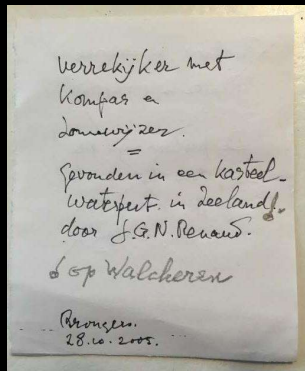 verrekijker met
kompas en
zonnewijzer.
=
gevonden in een kasteel-
waterput in Zeeland!
door J.G.N. Renaud.
op Walcheren
Brongers.
28.10.2005.